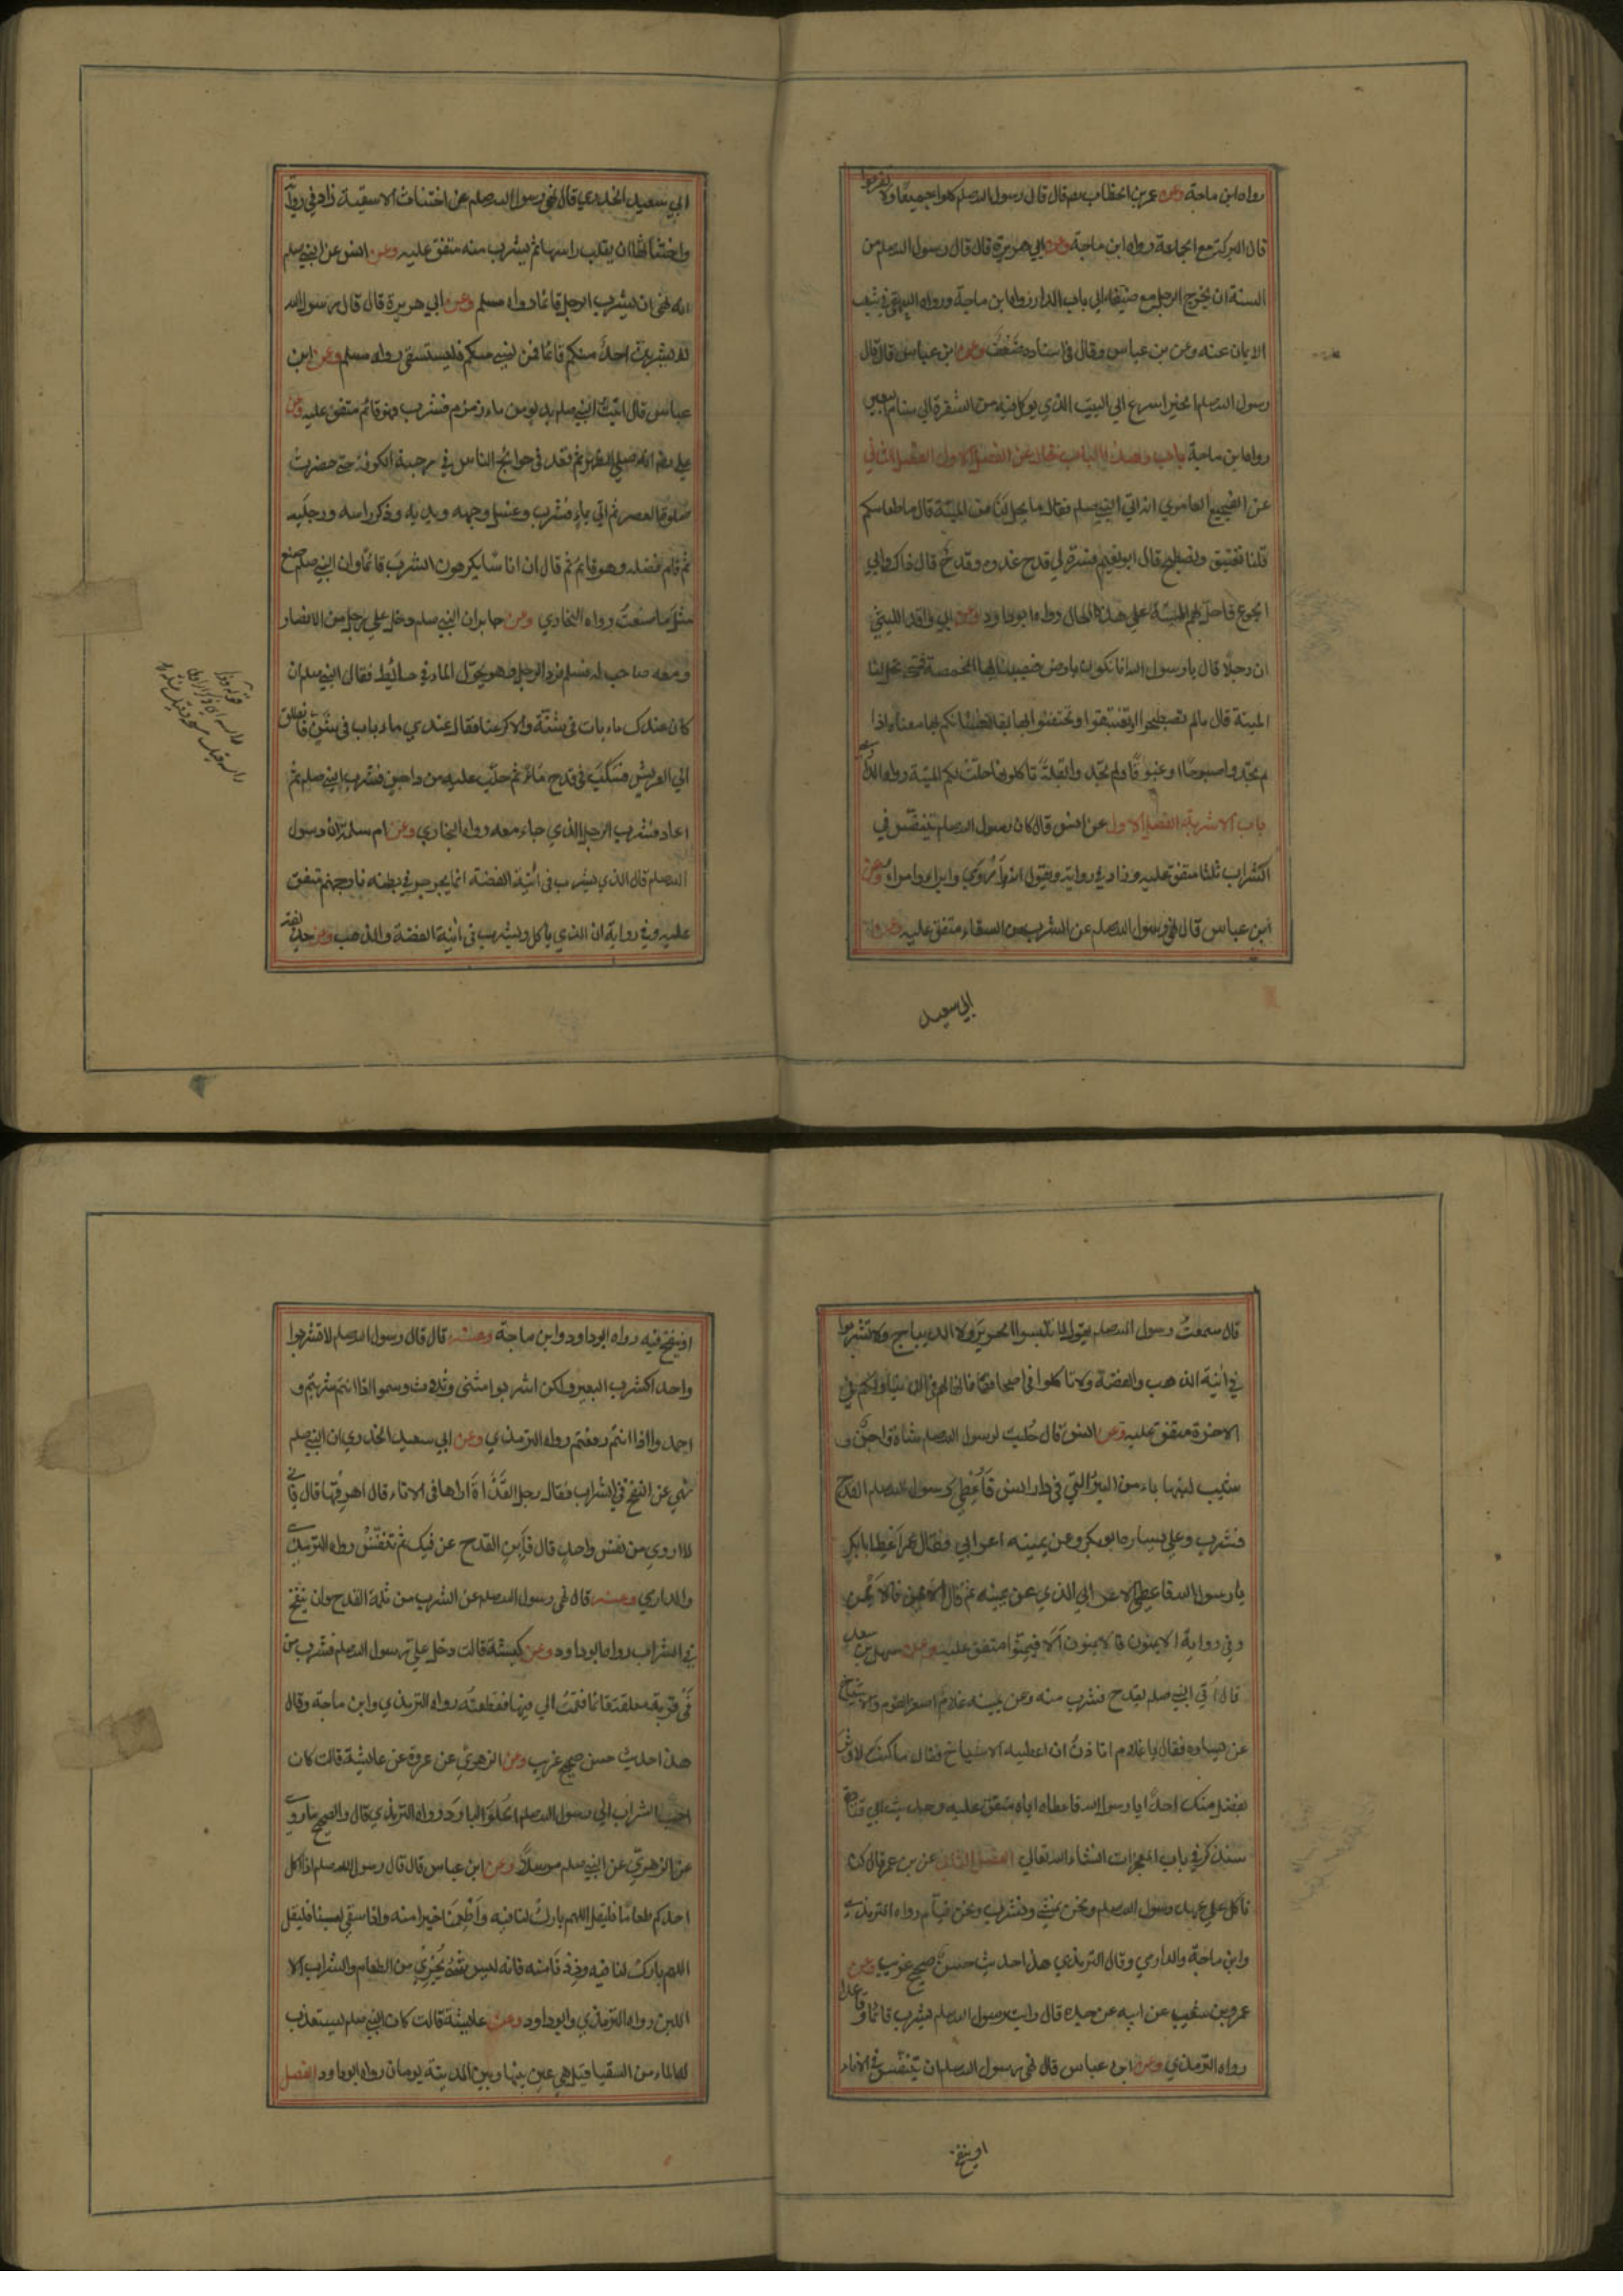 رواه ابن ماجة وعن عمر بن الخطاب رضه قال قال رسول الله صلم كلوا جميعا ولا تفرقوا
فان البركة مع الجماعة رواه ابن ماجة وعن ابي هريرة قال قال رسول الله صلم من
السنة ان يخرج الرجل مع ضيفه الي باب الدار رواه ابن ماجة ورواه البيهقي في شعب
الايمان عنه وعن بن عباس وقال في اسناده ضعف وعن ابن عباس قال قال
رسول الله صلم الخير اسرع الي البيت الذي يوكل فيه من الشفرة الي سنام البعير
رواه ابن ماجة باب وهذا الباب خال عن الفصل الاول الفصل الثاني
عن الفجيع العامري انه اتي النبي صلم فقال ما يحل لنا من الميتة قال ما طعامكم
قلنا نغتبق ونصطبح قال ابو نعيم فسره لي قدح غدوه وقدح قال ذاك وابي
الجوع فاحل لهم الميتة علي هذا الحال رواه ابو داود وعن ابي واقد الليثي
ان رجلا قال يا رسول الله انا نكون بارض فتصيبنا بها المخمصة فمتي تحل لنا
الميتة قال ما لم تصطبحوا او تغتبقوا وتحتفئوا بها بقلا فشانكم بها معناه اذا
لم تجدوا صبوحا او غبوقا ولم تجدوا بقلة تاكلونها حلت لكم الميتة رواه
باب الاشربة الفصل الاول عن انس قال كان رسول الله صلم يتنفس في
الشراب ثلثا متفق عليه وزاد في رواية ويقول انه اروي وابرا وامرا وعن
ابن عباس قال نهي رسول الله صلم عن الشرب من السقاء متفق عليه وعن
ابي سعيد
ابي سعيد الخدري قال نهي رسول الله صلم عن اختناث الاسقية زاد في رواية
واختناثها ان يقلب راسها ثم يشرب منه متفق عليه وعن انس عن النبي صلم
انه نهي ان يشرب الرجل قائما رواه مسلم وعن ابي هريرة قال قال رسول الله
لا يشربن احد منكم قائما فمن نسي منكم فليستقي رواه مسلم وعن ابن
عباس قال اتيت النبي صلم بدلو من ماء زمزم فشرب وهو قائم متفق عليه وعن
علي رضه انه صلي الظهر ثم قعد في حوائج الناس في رحبة الكوفة حتي حضرت
صلوة العصر ثم اتي بماء فشرب وغسل وجهه ويديه وذكر راسه ورجليه
ثم قام فشرب فضله وهو قائم ثم قال ان اناسا يكرهون الشرب قائما وان النبي صلم صنع
مثل ما صنعت رواه البخاري وعن جابر ان النبي صلم دخل علي رجل من الانصار
ومعه صاحب له فسلم فرد الرجل وهو يحول الماء في حائط فقال النبي صلم ان
كان عندك ماء بات في شنة والا كرعنا فقال عندي ماء بات في شن فانطلق
الي العريش فسكب في قدح ماء ثم حلب عليه من داجن فشرب النبي صلم ثم
اعاد فشرب الرجل الذي جاء معه رواه البخاري وعن ام سلمة ان رسول
الله صلم قال الذي يشرب في آنية الفضة انما يجرجر في بطنه نار جهنم متفق
عليه وفي رواية ان الذي ياكل ويشرب في آنية الفضة والذهب وعن حذيفة
قال سمعت رسول الله صلم يقول لا تلبسوا الحرير ولا الديباج ولا تشربوا
في آنية الذهب والفضة ولا تاكلوا في صحافها فانها لهم في الدنيا ولكم في
الاخرة متفق عليه وعن انس قال حلبت لرسول الله صلم شاة داجن و
شيب لبنها بماء من البئر التي في دار انس فاعطي رسول الله صلم القدح
فشرب وعلي يساره ابو بكر وعن يمينه اعرابي فقال عمر اعط ابا بكر
يا رسول الله فاعطي الاعرابي الذي عن يمينه ثم قال الايمن فالايمن
وفي رواية الايمنون فالايمنون الا فيمنوا متفق عليه وعن سهل بن سعد
قال اتي النبي صلم بقدح فشرب منه وعن يمينه غلام اصغر القوم والاشياخ
عن يساره فقال يا غلام اتاذن ان اعطيه الاشياخ فقال ما كنت لاوثر
بفضل منك احدا يا رسول الله فاعطاه اياه متفق عليه وحديث ابي قتادة
سنذكر في باب المعجزات انشاء الله تعالي الفصل الثاني عن بن عمر قال كنا
ناكل علي عهد رسول الله صلم ونحن نمشي ونشرب ونحن قيام رواه الترمذي
وابن ماجة والدارمي وقال الترمذي هذا حديث حسن صحيح غريب وعن
عمرو بن شعيب عن ابيه عن جده قال رايت رسول الله صلم يشرب قائما وقاعدا
رواه الترمذي وعن ابن عباس قال نهي رسول الله صلم ان يتنفس في الاناء
او ينفخ
او ينفخ فيه رواه ابو داود وابن ماجة وعنه قال قال رسول الله صلم لا تشربوا
واحدا كشرب البعير ولكن اشربوا مثني وثلاث وسموا اذا انتم شربتم و
احمدوا اذا انتم رفعتم رواه الترمذي وعن ابي سعيد الخدري ان النبي صلم
نهي عن النفخ في الشراب فقال رجل القذاة اراها في الاناء قال اهرقها قال فاني
لا اروي من نفس واحد قال فابن القدح عن فيك ثم تنفس رواه الترمذي
والدارمي وعنه قال نهي رسول الله صلم عن الشرب من ثلمة القدح وان ينفخ
في الشراب رواه ابو داود وعن كبشة قالت دخل علي رسول الله صلم فشرب من
في قربة معلقة قائما فقمت الي فيها فقطعته رواه الترمذي وابن ماجة وقال
هذا حديث حسن صحيح غريب وعن الزهري عن عروة عن عايشة قالت كان
احب الشراب الي رسول الله صلم الحلو البارد رواه الترمذي قال والصحيح ما روي
عن الزهري عن النبي صلم مرسلا وعن ابن عباس قال قال رسول الله صلم اذا اكل
احدكم طعاما فليقل اللهم بارك لنا فيه واطعمنا خيرا منه واذا سقي لبنا فليقل
اللهم بارك لنا فيه وزد فانه ليس شئ يجزي من الطعام والشراب الا
اللبن رواه الترمذي وابو داود وعن عايشة قالت كان النبي صلم يستعذب
له الماء من السقيا قيل هي عين بينها وبين المدينة يومان رواه ابو داود الفصل